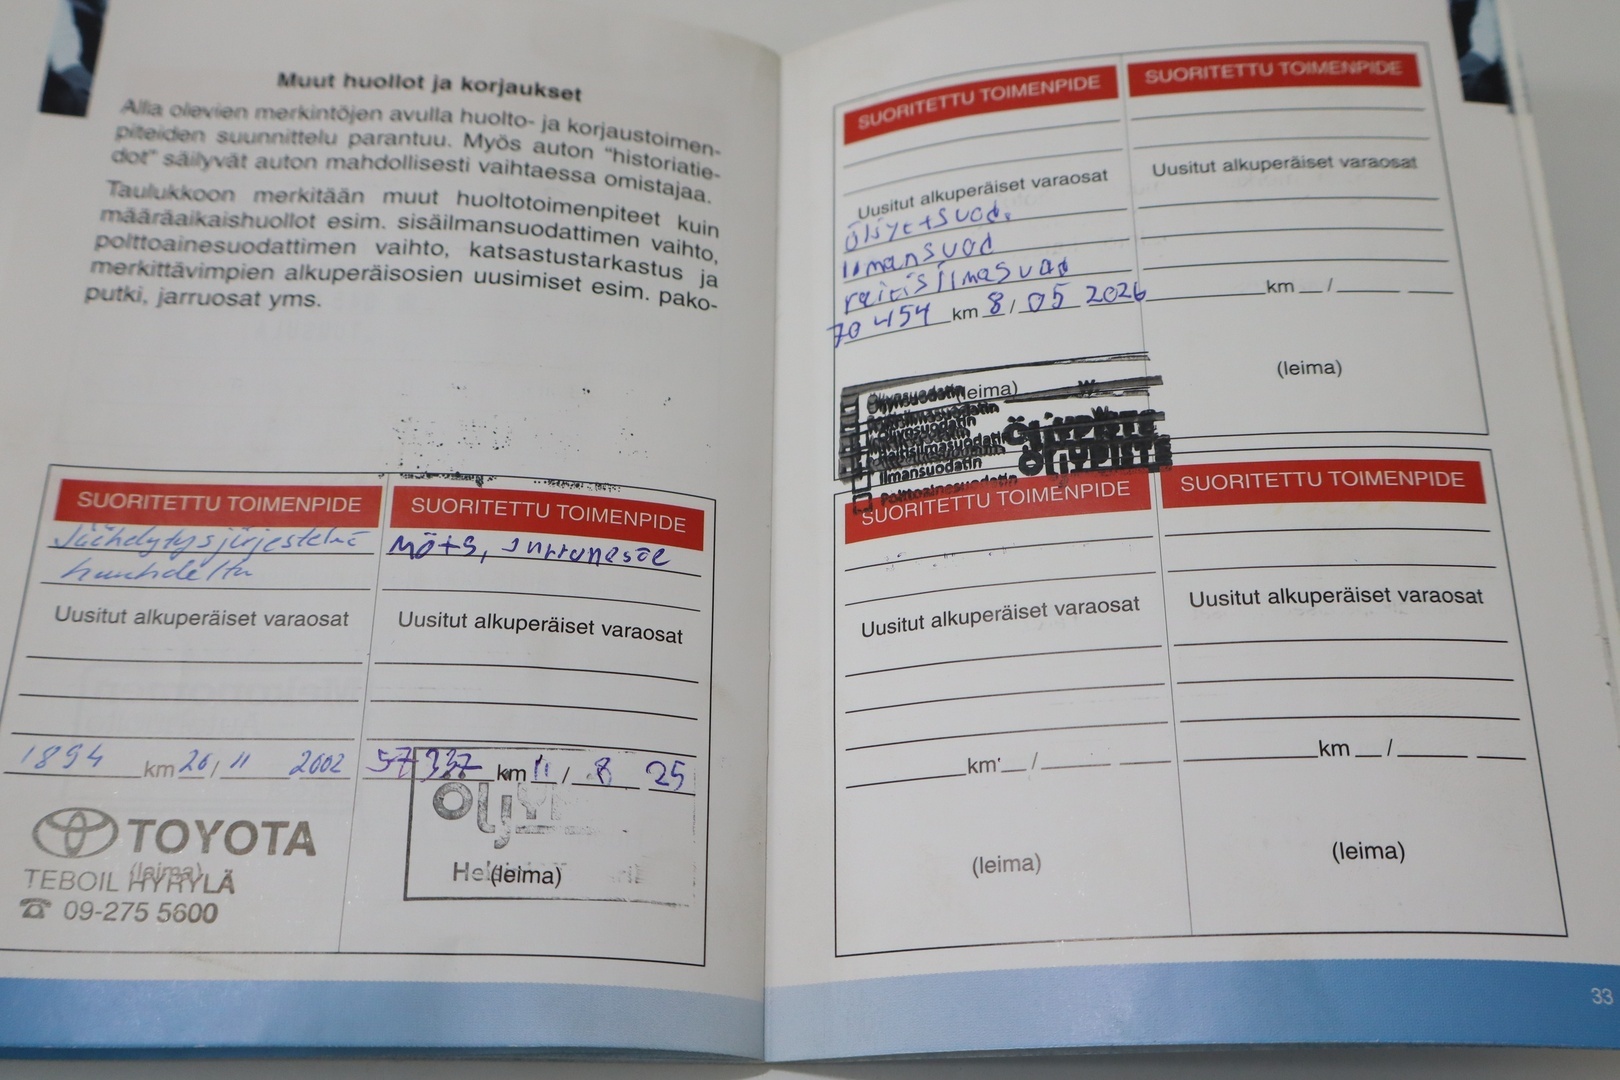 Muut huollot ja korjaukset
Alla olevien merkintöjen avulla huolto- ja korjaustoimen-
piteiden suunnittelu parantuu. Myös auton "historiatie-
dot" säilyvät auton mahdollisesti vaihtaessa omistajaa.
Taulukkoon merkitään muut huoltotoimenpiteet kuin
määräaikaishuollot esim. sisäilmansuodattimen vaihto,
polttoainesuodattimen vaihto, katsastustarkastus ja
merkittävimpien alkuperäisosien uusimiset esim. pako-
putki, jarruosat yms.
SUORITETTU TOIMENPIDE
Jäähdytysjärjestelmä
huuhdeltu
Uusitut alkuperäiset varaosat
1894 km 26/11 2002
TOYOTA
(leima)
TEBOIL HYRYLÄ
☎ 09-275 5600
SUORITETTU TOIMENPIDE
Uusitut alkuperäiset varaosat
57337 km 11/8 25
(leima)
SUORITETTU TOIMENPIDE
Uusitut alkuperäiset varaosat
öljyt+suod.
ilmansuod
raitisilmasuod
70454 km 8/05 2026
(leima)
Öljynsuodatin
Ilmansuodatin
Polttoainesuodatin
SUORITETTU TOIMENPIDE
Uusitut alkuperäiset varaosat
km /
(leima)
SUORITETTU TOIMENPIDE
Uusitut alkuperäiset varaosat
km /
(leima)
SUORITETTU TOIMENPIDE
Uusitut alkuperäiset varaosat
km /
(leima)
33